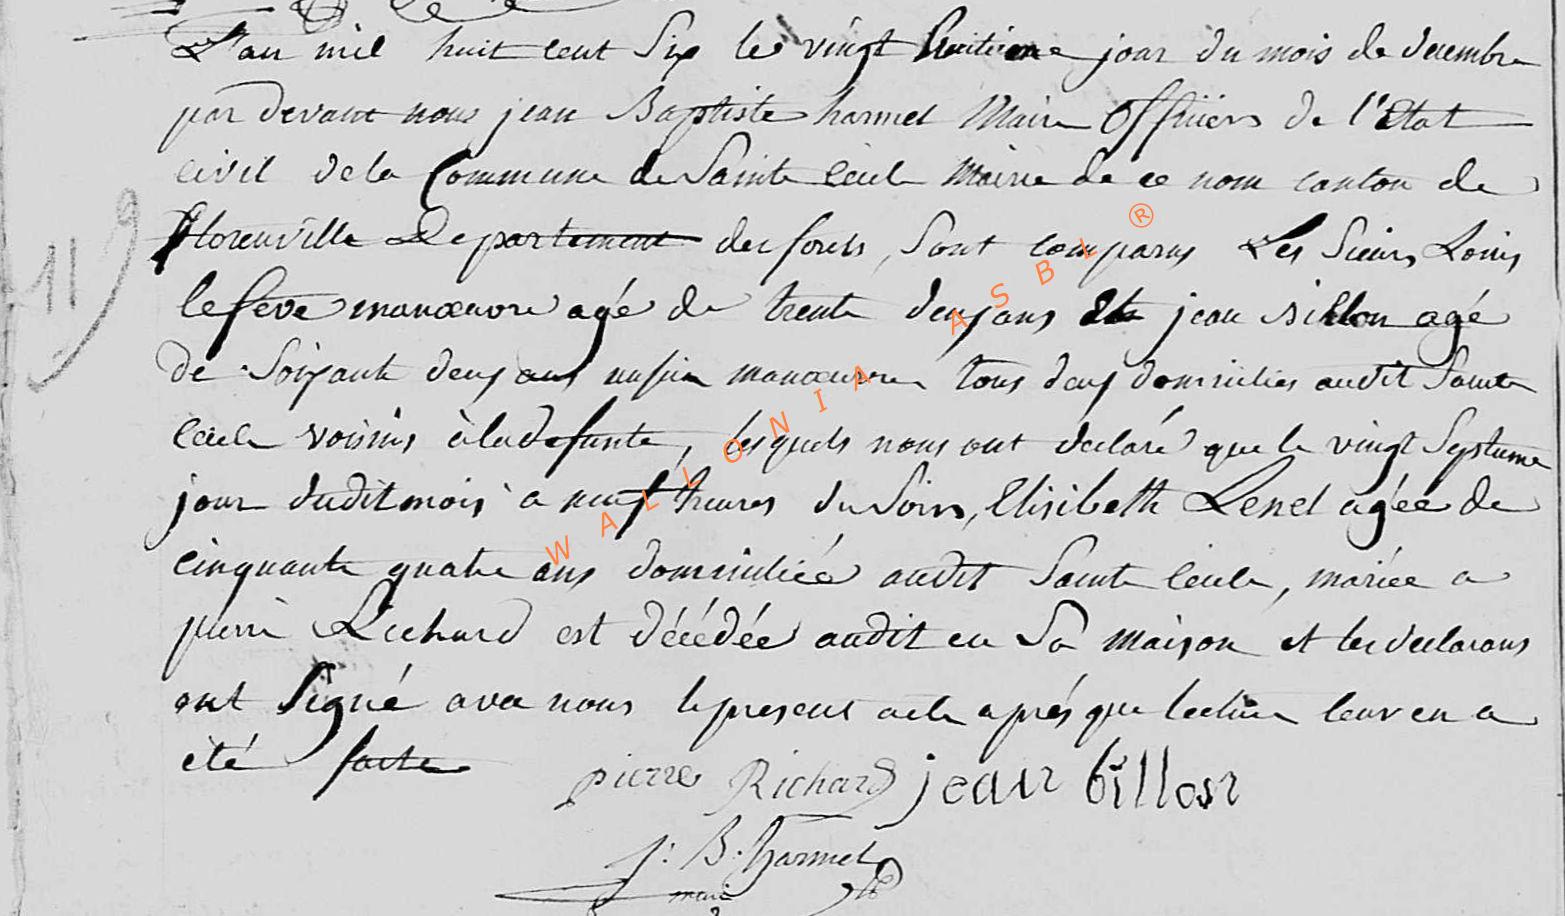 L'an mil huit cent Six le vingt huitieme jour du mois de decembre
par devant nous jean Baptiste harmel Maire Officiers de l'Etat
civil dela Commune de Sainte Cecile Mairie de ce nom canton de
florenville Departement des forets, Sont comparus Les Sieurs Louis
lefeve manœuvre agé de trente deux ans et jean Billon agé
de Soixante deux ans aussi manœuvre tous deux domiciliés audit Sainte
Cecile voisins à la defunte, lesquels nous ont declaré que le vingt Septieme
jour duditmois a neuf heures du Soirs, Elisibeth Lenel agée de
cinquante quatre ans domiciliée audit Sainte Cecile, mariée a
pierre Richard est décédée audit en Sa maison et les declarans
ont Signé avec nous le present acte aprés que lecture leur en a
eté faite
pierre Richard jean billon
j: B. harmel
maire
119
WALLONIA ASBL ®